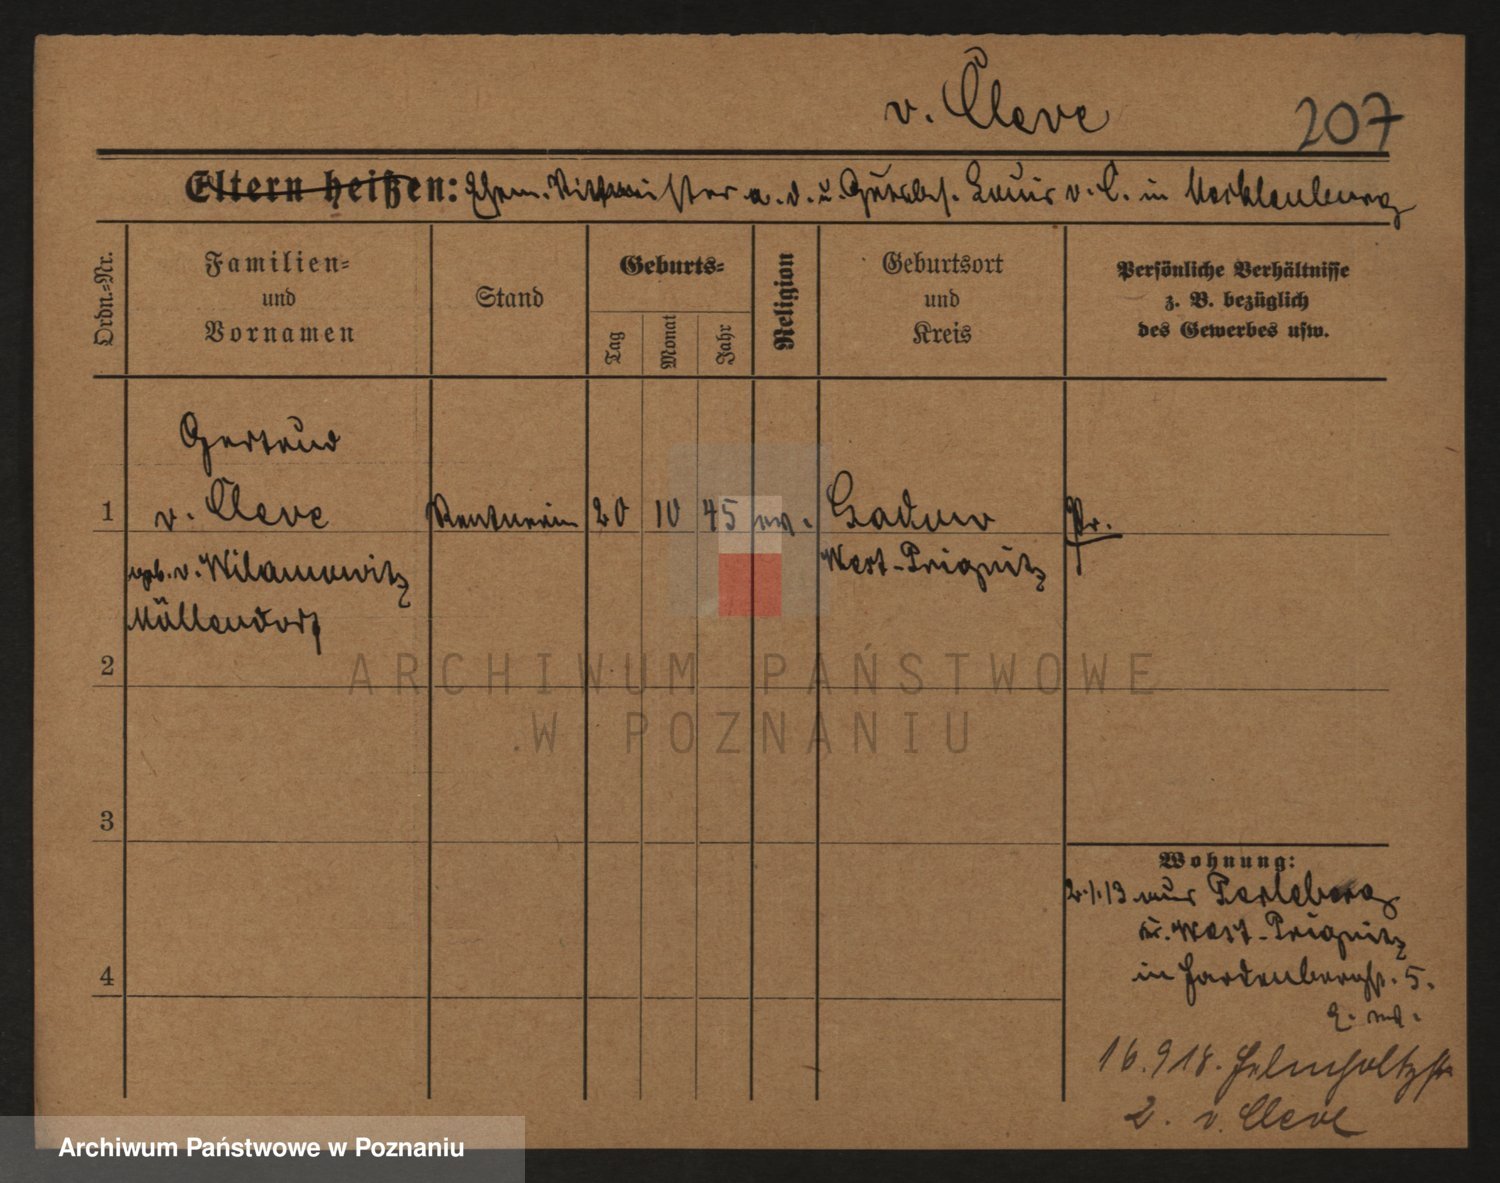 v. Cleve 207
Eltern heißen: Ehem. Rittmeister a. d. u. Gutsbes. Louis v. C. in Mecklenburg
Ordn.-Nr.
Familien-
und
Vornamen
Stand
Geburts-
Tag
Monat
Jahr
Religion
Geburtsort
und
Kreis
Persönliche Verhältnisse
z. B. bezüglich
des Gewerbes usw.
Gertrud
1 v. Cleve Rentnerin 20 10 45 ev. Gadow Pr.
geb. v. Wilamowitz West-Prignitz
Möllendorf
2
3
4
Wohnung:
2.1.13 aus Perleberg
Kr. West-Prignitz
in Hardenbergstr. 5.
16.9.18. Helmholtzstr
2. v. Cleve
ARCHIWUM PAŃSTWOWE
W POZNANIU
Archiwum Państwowe w Poznaniu